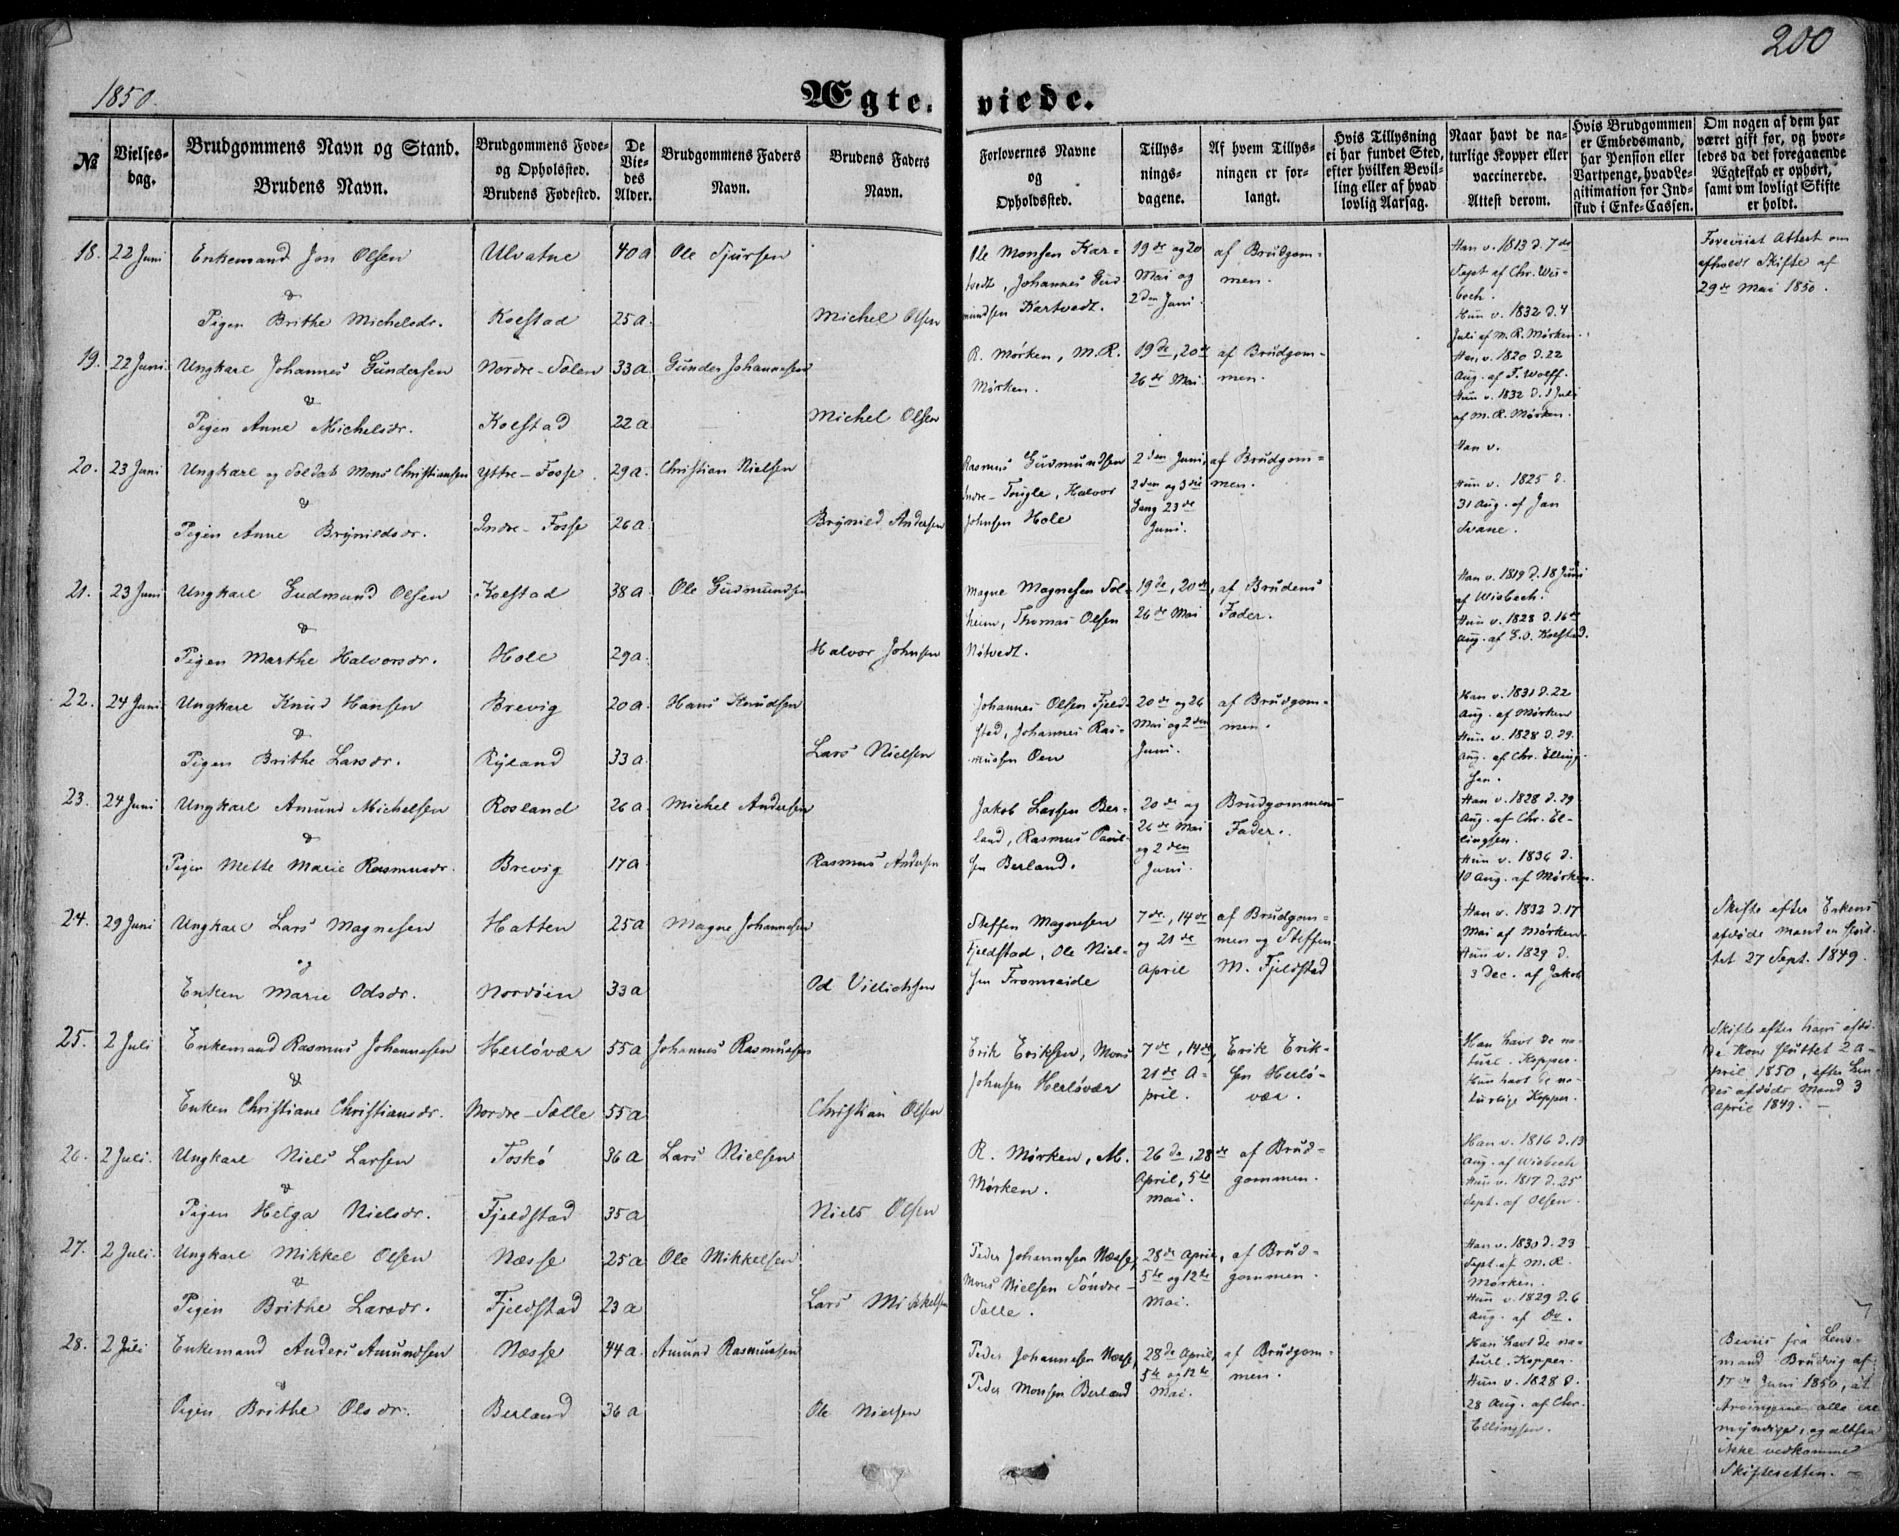 1850.
200
Ægte-viede.
№
Vielses-
dag.
Brudgommens Navn og Stand.
Brudens Navn.
Brudgommens Føde-
og Opholsted.
Brudens Fødested.
De
Vie-
des
Alder.
Brudgommens Faders
Navn.
Brudens Faders
Navn.
Forlovernes Navne
og
Opholdsted.
Tillys-
nings-
dagene.
Af hvem Tillys-
ningen er for-
langt.
Hvis Tillysning
ei har fundet Sted,
efter hvilken Bevil-
ling eller af hvad
lovlig Aarsag.
Naar havt de na-
turlige Kopper eller
vaccinerede.
Attest derom.
Hvis Brudgommen
er Embedsmand,
har Pension eller
Vartpenge, hvad Le-
gitimation for Ind-
skud i Enke-Cassen.
Om nogen af dem har
været gift før, og hvor-
ledes da det foregaaende
Ægteskab er ophørt,
samt om lovligt Skifte
er holdt.
18. 22 Juni Enkemand Jon Olsen Ulvatne 40 a Ole Sjursen
&
Pigen Brithe Michelsdr. Kolstad 25 a. Michel Olsen
Ole Monsen Kar-
tvedt, Johannes Gud
mundsen Kartvedt.
19de og 20
Mai og
2den Juni.
af Brudgom-
men.
Han v. 1813 d. 7de
Sept af Chr. Wis-
bech.
Hun v. 1832 d. 4
Juli af M. R. Mørken.
Foreviist Attest om
afholdt Skifte af
29de Mai 1850.
19. 22 Juni. Ungkarl Johannes Gundersen Nordre-Solen 33 a Gunder Johannesen
&
Pigen Anne Michelsdr. Kolstad 22 a. Michel Olsen
R. Mørken, M. R.
Mørken.
19de, 20de
26de Mai
af Brudgom-
men.
Han v. 1820 d. 22
Aug. af F. Wolff.
Hun v. 1832 d. 1 Juli
af M. R. Mørken.
20. 23 Juni Ungkarl og Soldat Mons Christiansen Yttre-Fosse. 29 a. Christian Nielsen
&
Pigen Anne Brynildsdr. Indre-Fosse 26 a. Brynild Andersen
Rasmus Gudmundsen
Indre-Tougle, Halvor
Johnsen Hole
2den Juni,
2den og 3die
Gang 23de
Juni.
af Brudgom-
men.
Han v.
Hun v. 1825 d.
31 Aug. af Jan
Svane.
21. 23 Juni Ungkarl Gudmund Olsen Kolstad 38 a. Ole Gudmundsen
&
Pigen Marthe Halvorsdr. Hole 29 a. Halvor Johnsen
Magne Magnesen Sol-
heim, Thomas Olsen
Nøtvedt.
19de, 20de,
26de Mai
af Brudens
Fader.
Han v. 1819 d. 18 Juni
af Wisbech.
Hun v. 1828 d. 16de
Aug. af G. O. Kolstad.
22. 24 Juni Ungkarl Knud Hansen Brevig 20 a. Hans Knudsen
&
Pigen Brithe Larsdr. Ryland 33 a. Lars Nielsen
Johannes Olsen Fjeld-
stad, Johannes Ras-
mussen Oen
20de og 26
Mai og 2den
Juni.
af Brudgom-
men.
Han v. 1831 d. 22
Aug. af Mørken
Hun v. 1828 d. 29.
Aug. af Chr. Elling-
sen.
23. 24 Juni Ungkarl Amund Michelsen Rosland 26 a. Michel Andersen
&
Pigen Mette Marie Rasmusdr. Brevig 17 a. Rasmus Andersen
Jakob Larsen Ber-
land, Rasmus Paul-
sen Berland.
20de og
26de Mai
og 2den
Juni.
Brudgommens
Fader.
Han v. 1828 d. 29
Aug. af Chr. El-
lingsen.
Hun v. 1836 d.
10 Aug. af Mørken.
24. 29 Juni Ungkarl Lars Magnesen Hatten 25 a Magne Johannesen
og
Enken Marie Odsdr. Nordøen 33 a Od Villichsen
Steffen Magnesen
Fjeldstad, Ole Niel-
sen Tromneide
7de, 14de
og 21de
April
af Brudgom-
men og Steffen
M. Fjeldstad
Han v. 1832 d. 17
Mai af Mørken.
Hun v. 1829 d.
3 Dec. af Jakob
Skifte efter Enkens
afdøde Mand er slut-
tet 27 Sept. 1849.
25. 2 Juli Enkemand Rasmus Johannesen Herløvær 55 a Johannes Rasmussen
&
Enken Christiane Christiansdr. Nordre-Solle 55 a Christian Olsen
Erik Eriksen, Mons
Johnsen Herløvær
7de, 14de,
21de A-
pril.
Erik Erik-
sen Herlø-
vær.
Han havt de na-
turl. Kopper.
Hun havt de na-
turlige Kopper.
Skifte efter hans afdø-
de Kone sluttet 2 A-
pril 1850, efter hen-
des afdøde Mand 3
April 1849. —
26. 2 Juli. Ungkarl Niels Larsen Toskø 36 a Lars Nielsen
&
Pigen Helga Nielsdr. Fjeldstad 35 a Niels Olsen
R. Mørken, M.
Mørken.
26de, 28de
April, 5te
Mai.
af Brud-
gommen.
Han v. 1816 d. 13
Aug. af Wisbech
Hun v. 1817 d. 25
Sept. af Olsen.
27. 2 Juli. Ungkarl Mikkel Olsen Næsse 25 a Ole Mikkelsen
&
Pigen Brithe Larsdr. Fjeldstad 23 a Lars Mikkelsen
Peder Johannesen Næsse,
Mons Nielsen Søndre-
Solle.
28de April,
5te og 12te
Mai.
af Brud-
gommen.
Han v. 1830 d. 23
Sept. af M. R.
Mørken.
Hun v. 1829 d. 6
Aug. af Do.
28. 2 Juli Enkemand Anders Amundsen Næsse 44 a. Amund Rasmussen
&
Pigen Brithe Olsdr. Berland 36 a Ole Nielsen
Peder Johannesen Næsse,
Peder Monsen Berland
28de April,
5te og 12te
Mai.
af Brudgom-
men.
Han havt de na-
turl. Kopper.
Hun v. 1828 d.
28 Aug. af Chr.
Ellingsen.
Beviis fra Lens-
mand Brudvig af
17de Juni 1850, at
Arvingerne alle ere
myndige, og altsaa
ikke vedkommer
Skifteretten. —